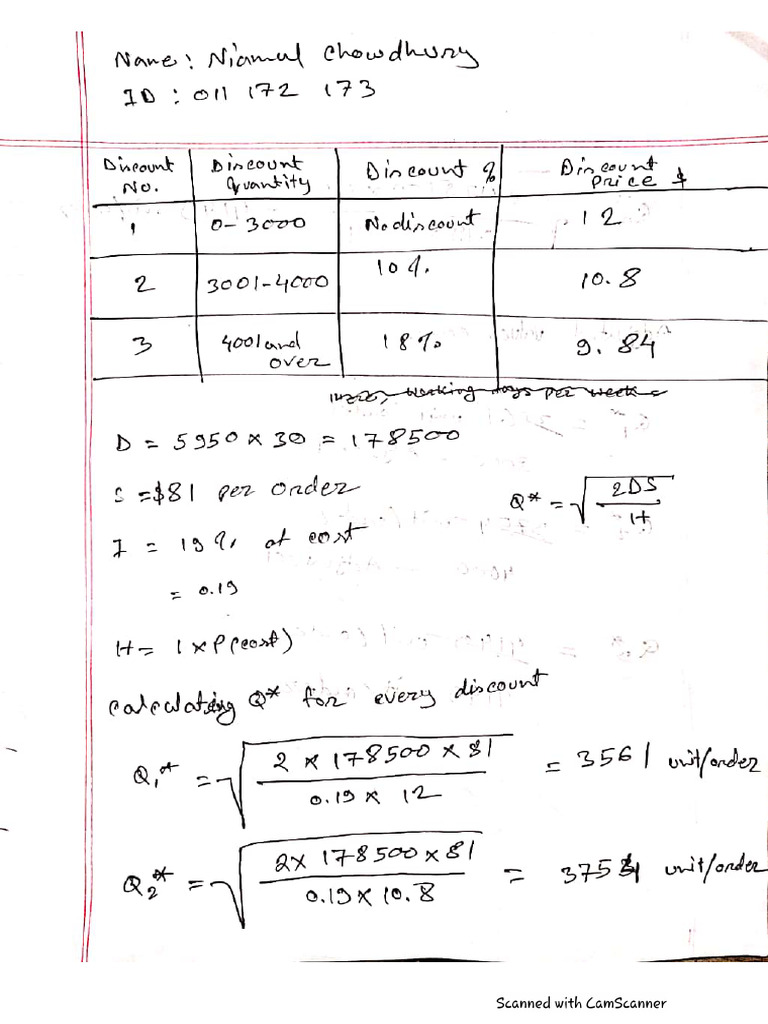 Name: Niamul Chowdhury
ID : 011 172 173
Discount No. | Discount Quantity | Discount % | Discount Price $
1 | 0-3000 | No discount | 12
2 | 3001-4000 | 10% | 10.8
3 | 4001 and over | 18% | 9.84
working days per week =
D = 5950 × 30 = 178500
S = $81 per order
Q* = √(2DS / H)
I = 19% at cost
= 0.19
H = I × P (cost)
calculating Q* for every discount
Q₁* = √(2 × 178500 × 81 / 0.19 × 12) = 3561 unit/order
Q₂* = √(2 × 178500 × 81 / 0.19 × 10.8) = 3754 unit/order
Scanned with CamScanner